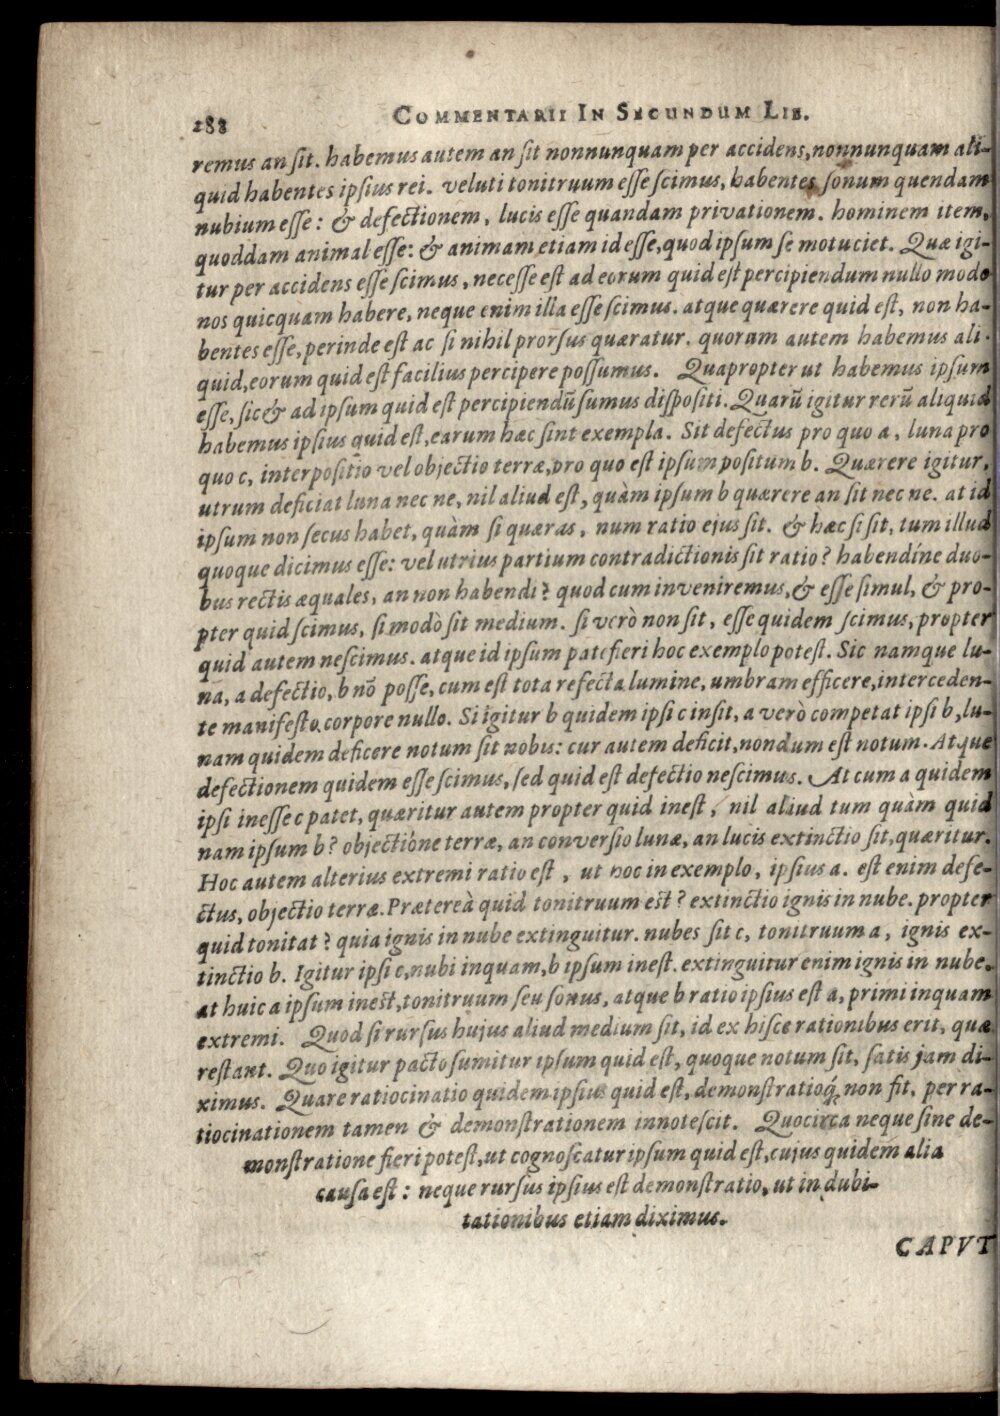 288 COMMENTARII IN SECUNDUM LIB.
remus an ſit. habemus autem an ſit nonnunquam per accidens, nonnunquam ali-
quid habentes ipſius rei. veluti tonitruum eſſe ſcimus, habentes ſonum quendam
nubium eſſe: & defectionem, lucis eſſe quandam privationem. hominem item,
quoddam animal eſſe: & animam etiam id eſſe, quod ipſum ſe motu ciet. Quæ igi-
tur per accidens eſſe ſcimus, neceſſe eſt ad eorum quid eſt percipiendum nullo modo
nos quicquam habere, neque enim illa eſſe ſcimus. atque quærere quid eſt, non ha-
bentes eſſe, perinde eſt ac ſi nihil prorſus quæratur. quorum autem habemus ali-
quid, eorum quid eſt facilius percipere poſſumus. Quapropter ut habemus ipſum
eſſe, ſic & ad ipſum quid est percipiendũ ſumus diſpoſiti. Quarũ igitur rerũ aliquid
habemus ipſius quid eſt, earum hæc ſint exempla. Sit defectus pro quo a, luna pro
quo c, interpoſitio vel objectio terræ, pro quo est ipſum poſitum b. Quærere igitur,
utrum deficiat luna nec ne, nil aliud eſt, quàm ipſum b quærere an ſit nec ne. at id
ipſum non ſecus habet, quàm ſi quæras, num ratio ejus ſit. & hæc ſi ſit, tum illud
quoque dicimus eſſe: vel utrius partium contradictionis ſit ratio? habendíne duo-
bus rectis æquales, an non habendi? quod cum inveniremus, & eſſe ſimul, & pro-
pter quid ſcimus, ſi modò ſit medium. ſi verò non ſit, eſſe quidem ſcimus, propter
quid autem neſcimus. atque id ipſum patefieri hoc exemplo poteſt. Sic namque lu-
na, a defectio, b nõ poſſe, cum est tota refecta lumine, umbram efficere, interceden-
te manifeſto corpore nullo. Si igitur b quidem ipſi c inſit, a verò competat ipſi b, lu-
nam quidem deficere notum ſit nobis: cur autem deficit, nondum eſt notum. Atque
defectionem quidem eſſe ſcimus, ſed quid eſt defectio neſcimus. At cum a quidem
ipſi ineſſe c patet, quæritur autem propter quid ineſt, nil aliud tum quàm quid
nam ipſum b? objectióne terræ, an converſio lunæ, an lucis extinctio ſit, quæritur.
Hoc autem alterius extremi ratio eſt, ut hoc in exemplo, ipſius a. eſt enim defe-
ctus, objectio terræ. Prætereà quid tonitruum eſt? extinctio ignis in nube. propter
quid tonitat? quia ignis in nube extinguitur. nubes ſit c, tonitruum a, ignis ex-
tinctio b. Igitur ipſi c, nubi inquam, b ipſum ineſt. extinguitur enim ignis in nube.
at huic a ipſum ineſt, tonitruum ſeu ſonus, atque b ratio ipſius est a, primi inquam
extremi. Quod ſi rurſus hujus aliud medium ſit, id ex hiſce rationibus erit, quæ
reſtant. Quo igitur pacto ſumitur ipſum quid eſt, quoque notum ſit, ſatis jam di-
ximus. Quare ratiocinatio quidem ipſius quid eſt, demonſtratioq́; non fit, per ra-
tiocinationem tamen & demonſtrationem innoteſcit. Quocirca neque ſine de-
monſtratione fieri poteſt, ut cognoſcatur ipſum quid eſt, cujus quidem alia
cauſa eſt: neque rurſus ipſius eſt demonſtratio, ut in dubi-
tationibus etiam diximus.
CAPVT